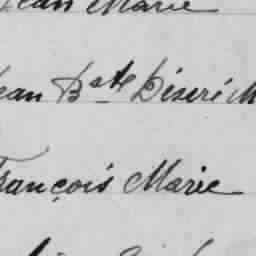 Jean Marie
Jean Bte Désiré M
François Marie